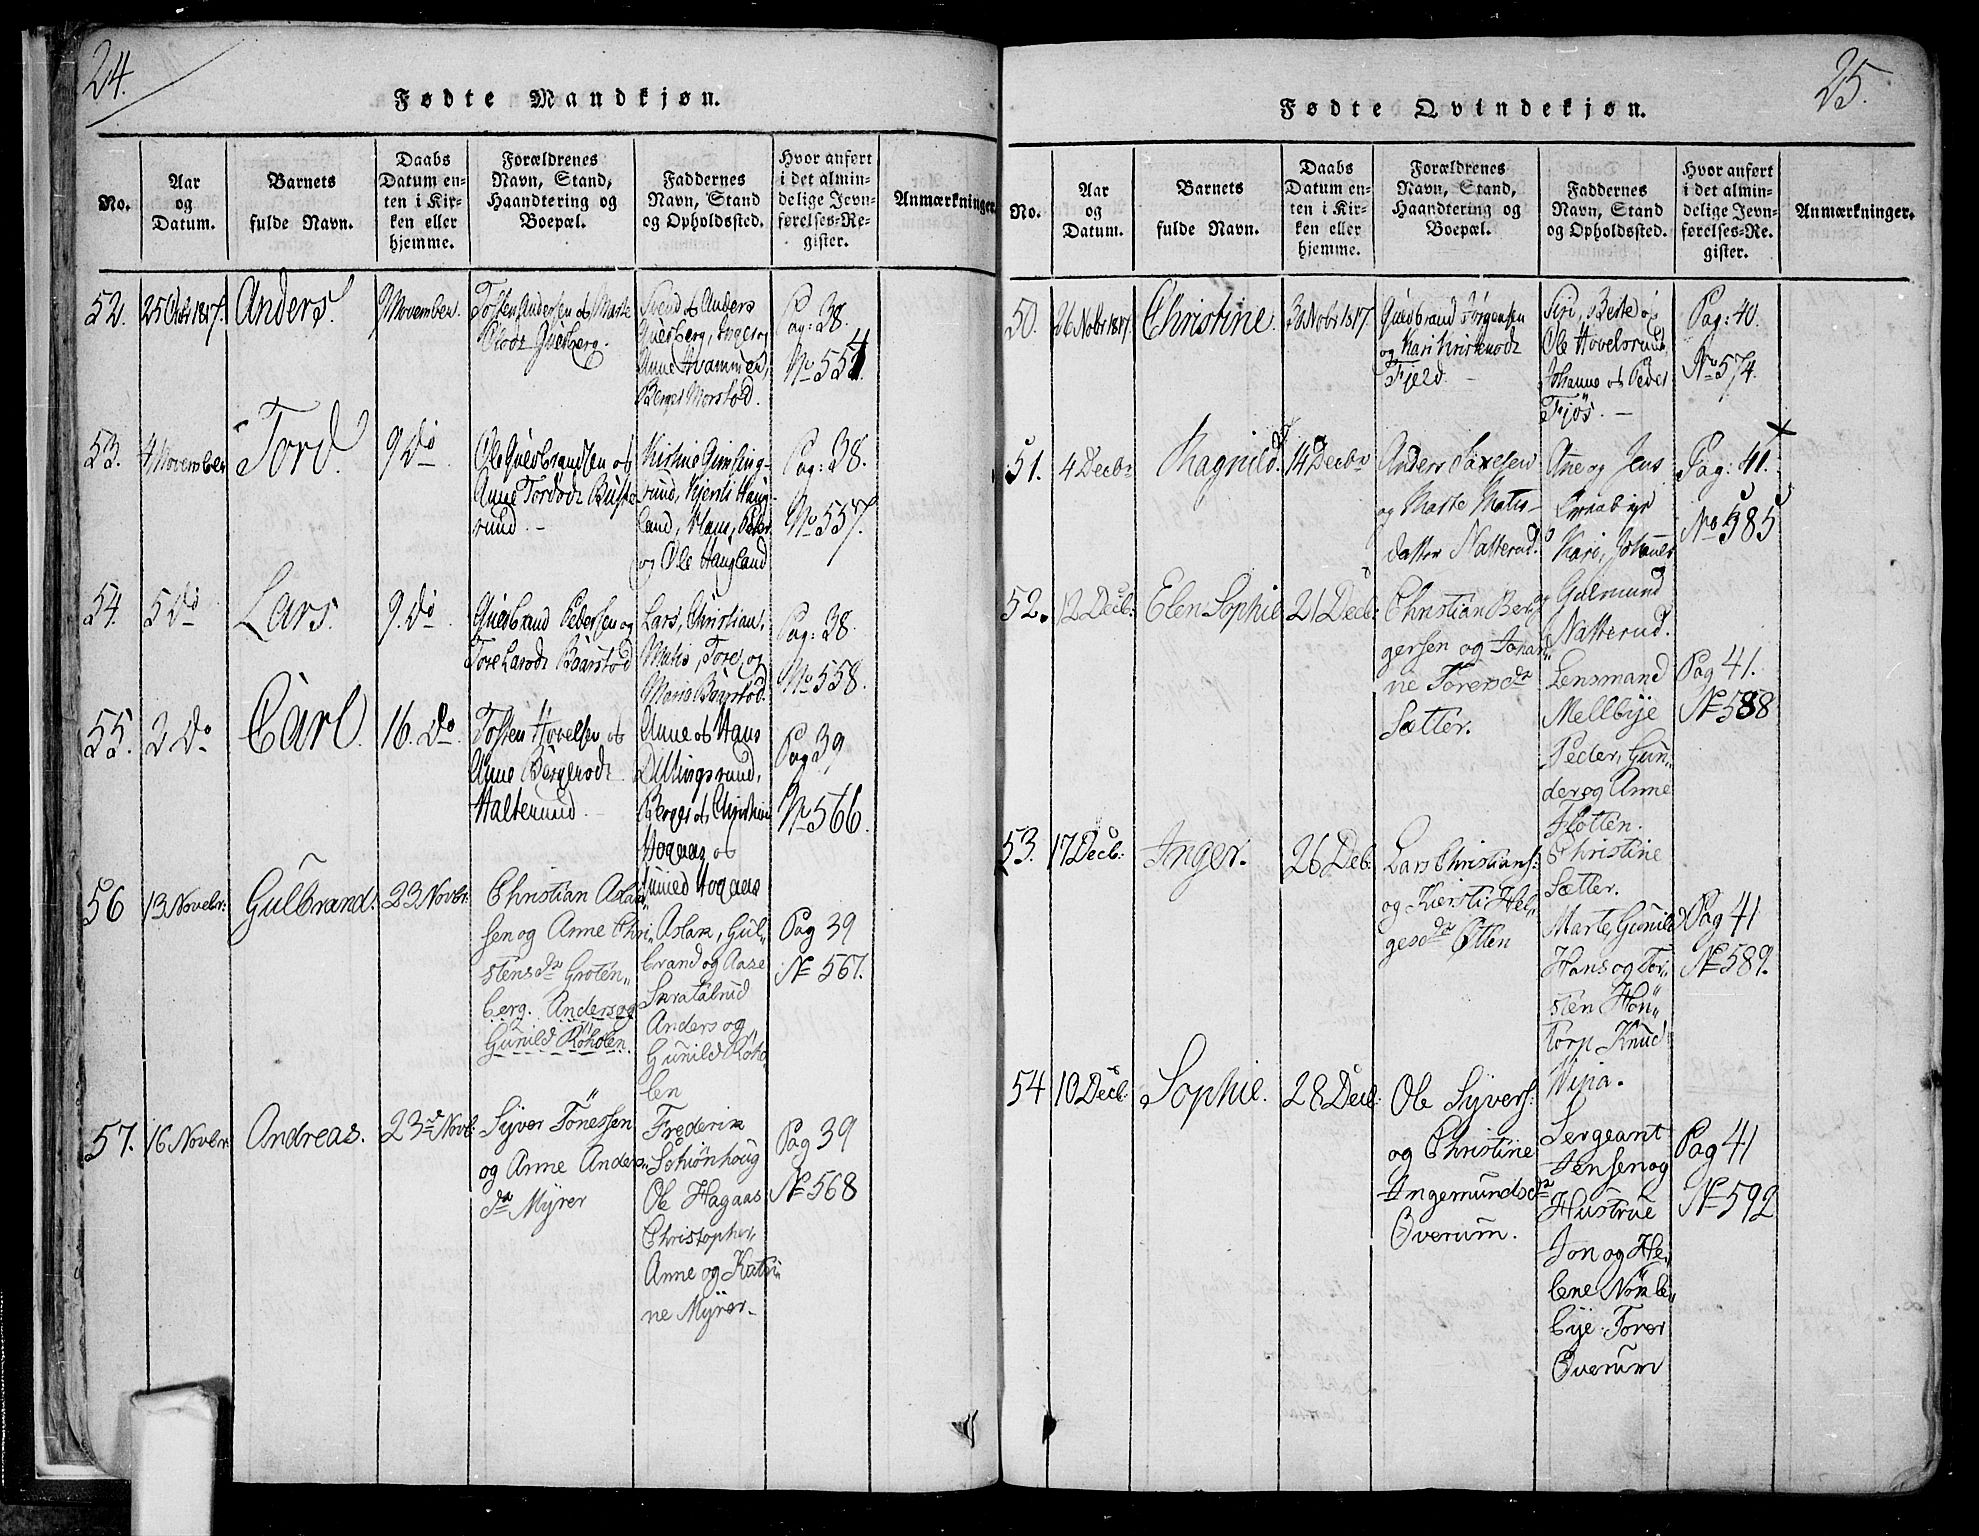 24.
Fødte Mandkjøn.
No.
Aar
og
Datum.
Barnets
fulde Navn.
Daabs
Datum en-
ten i Kir-
ken eller
hjemme.
Forældrenes
Navn, Stand,
Haandtering og
Boepæl.
Faddernes
Navn, Stand
og Opholdssted.
Hvor anført
i det almin-
delige Jevn-
førelses-Re-
gister.
Anmærkninger.
52.
25 Octbr 1817.
Anders.
9 November.
Tosten Andersen og Marte
Svend og Anders
Anne Hvammen,
Berger Morstød.
Pag: 38.
No 554
53.
4 November
Tord.
9 do
Ole Guldbrandsen og
Anne Tordsdt
rund. -
rund, Kjersti Haug-
land, Hans, Peder
og Ole Haugland
Pag: 38.
No 557.
54.
5 do
Lars.
9. do
Guldbrand Pedersen og
Tore Larsdt Baarstød
Lars, Christian,
Matis, Tore, og
Maria Baarstød.
Pag: 38
No 558.
55.
2 do
Carl.
16. do
Tosten Hovelsen og
Anne Bergersdt
Halterund.
Anne og Hans
Dillingsrund,
Berger og Christian
Hogaas og
Hogaas
Pag 39
No 566.
56
13 Novebr:
Gulbrand.
23 Novbr.
Christian Aslak„
sen og Anne Chri„
stensdr Groten„
berg. Anders og
Gunild Røholen.
Aslak, Gul„
brand og Aase
Skratalrud
Anders og
Gunild Røho„
len
Pag 39
No 567.
57.
16 Novbr.
Andreas.
23de Novb.
Syver Tønessen
og Anne Anders„
dr Myrer
Frederik
Schiønhoug
Ole Hagaas
Christopher„
Anne og Katri
ne Myrer.
Pag 39
No 568
25.
Fødte Qvindekjøn.
No.
Aar
og
Datum.
Barnets
fulde Navn.
Daabs
Datum en-
ten i Kir-
ken eller
hjemme.
Forældrenes
Navn, Stand,
Haandtering og
Boepæl.
Faddernes
Navn, Stand
og Opholdssted.
Hvor anført
i det almin-
delige Jevn-
førelses-Re-
gister.
Anmærkninger.
50.
26 Nobr 1817.
Christine.
Nobr 1817.
Guldbrand Jørgensen
og Kari
Fjeld. -
Siri, Berte og
Ole Hovelsrud,
Johanne og Peder
Fjøs. -
Pag: 40.
No 574.
51.
4 Decbr
Ragnild.
14 Decbr
Anders
og Marte Matis-
datter Natterud.
Ane og Jens
Kari, Johanes
og Gulmund
Natterud.
Pag: 41.
No 585
52.
12 Decb:
Elen Sophie
21 Decb.
Christian Ber„
gersen og Johan„
ne Toresdr
Sætter.
Lensmand
Mellbye
Peder, Gun„
der og Anne
Flotten.
Christine
Sætter.
Pag 41.
No 588
53.
17 Decb:
Inger.
26 Deb.
Lars Christians:
og Kiersti Hel„
gesdr Øtten
Marte, Gunild
Hans og Tor„
sten Hon„
torp Knud
Pag 41
No 589.
54
10 Decb:
Sophie.
28 Decb:
Ole Syvers:
og Christine
Ingemundsdr
Overum.
Sergeant
Jensen og
Hustrue
Jon og He„
lene Nøkle„
bye. Torer
Overum
Pag 41
No 592